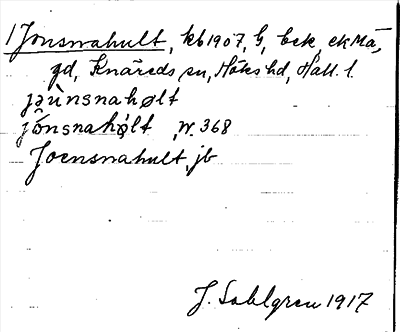 1 Jonsnahult, kb 1907, h, bek, ek Mä,
gd, Knäreds sn, Höks hd, Hall. l.
jəùnsnahølt
jônsnahølt, W. 368
Joensnahult, jb
J. Sahlgren 1917